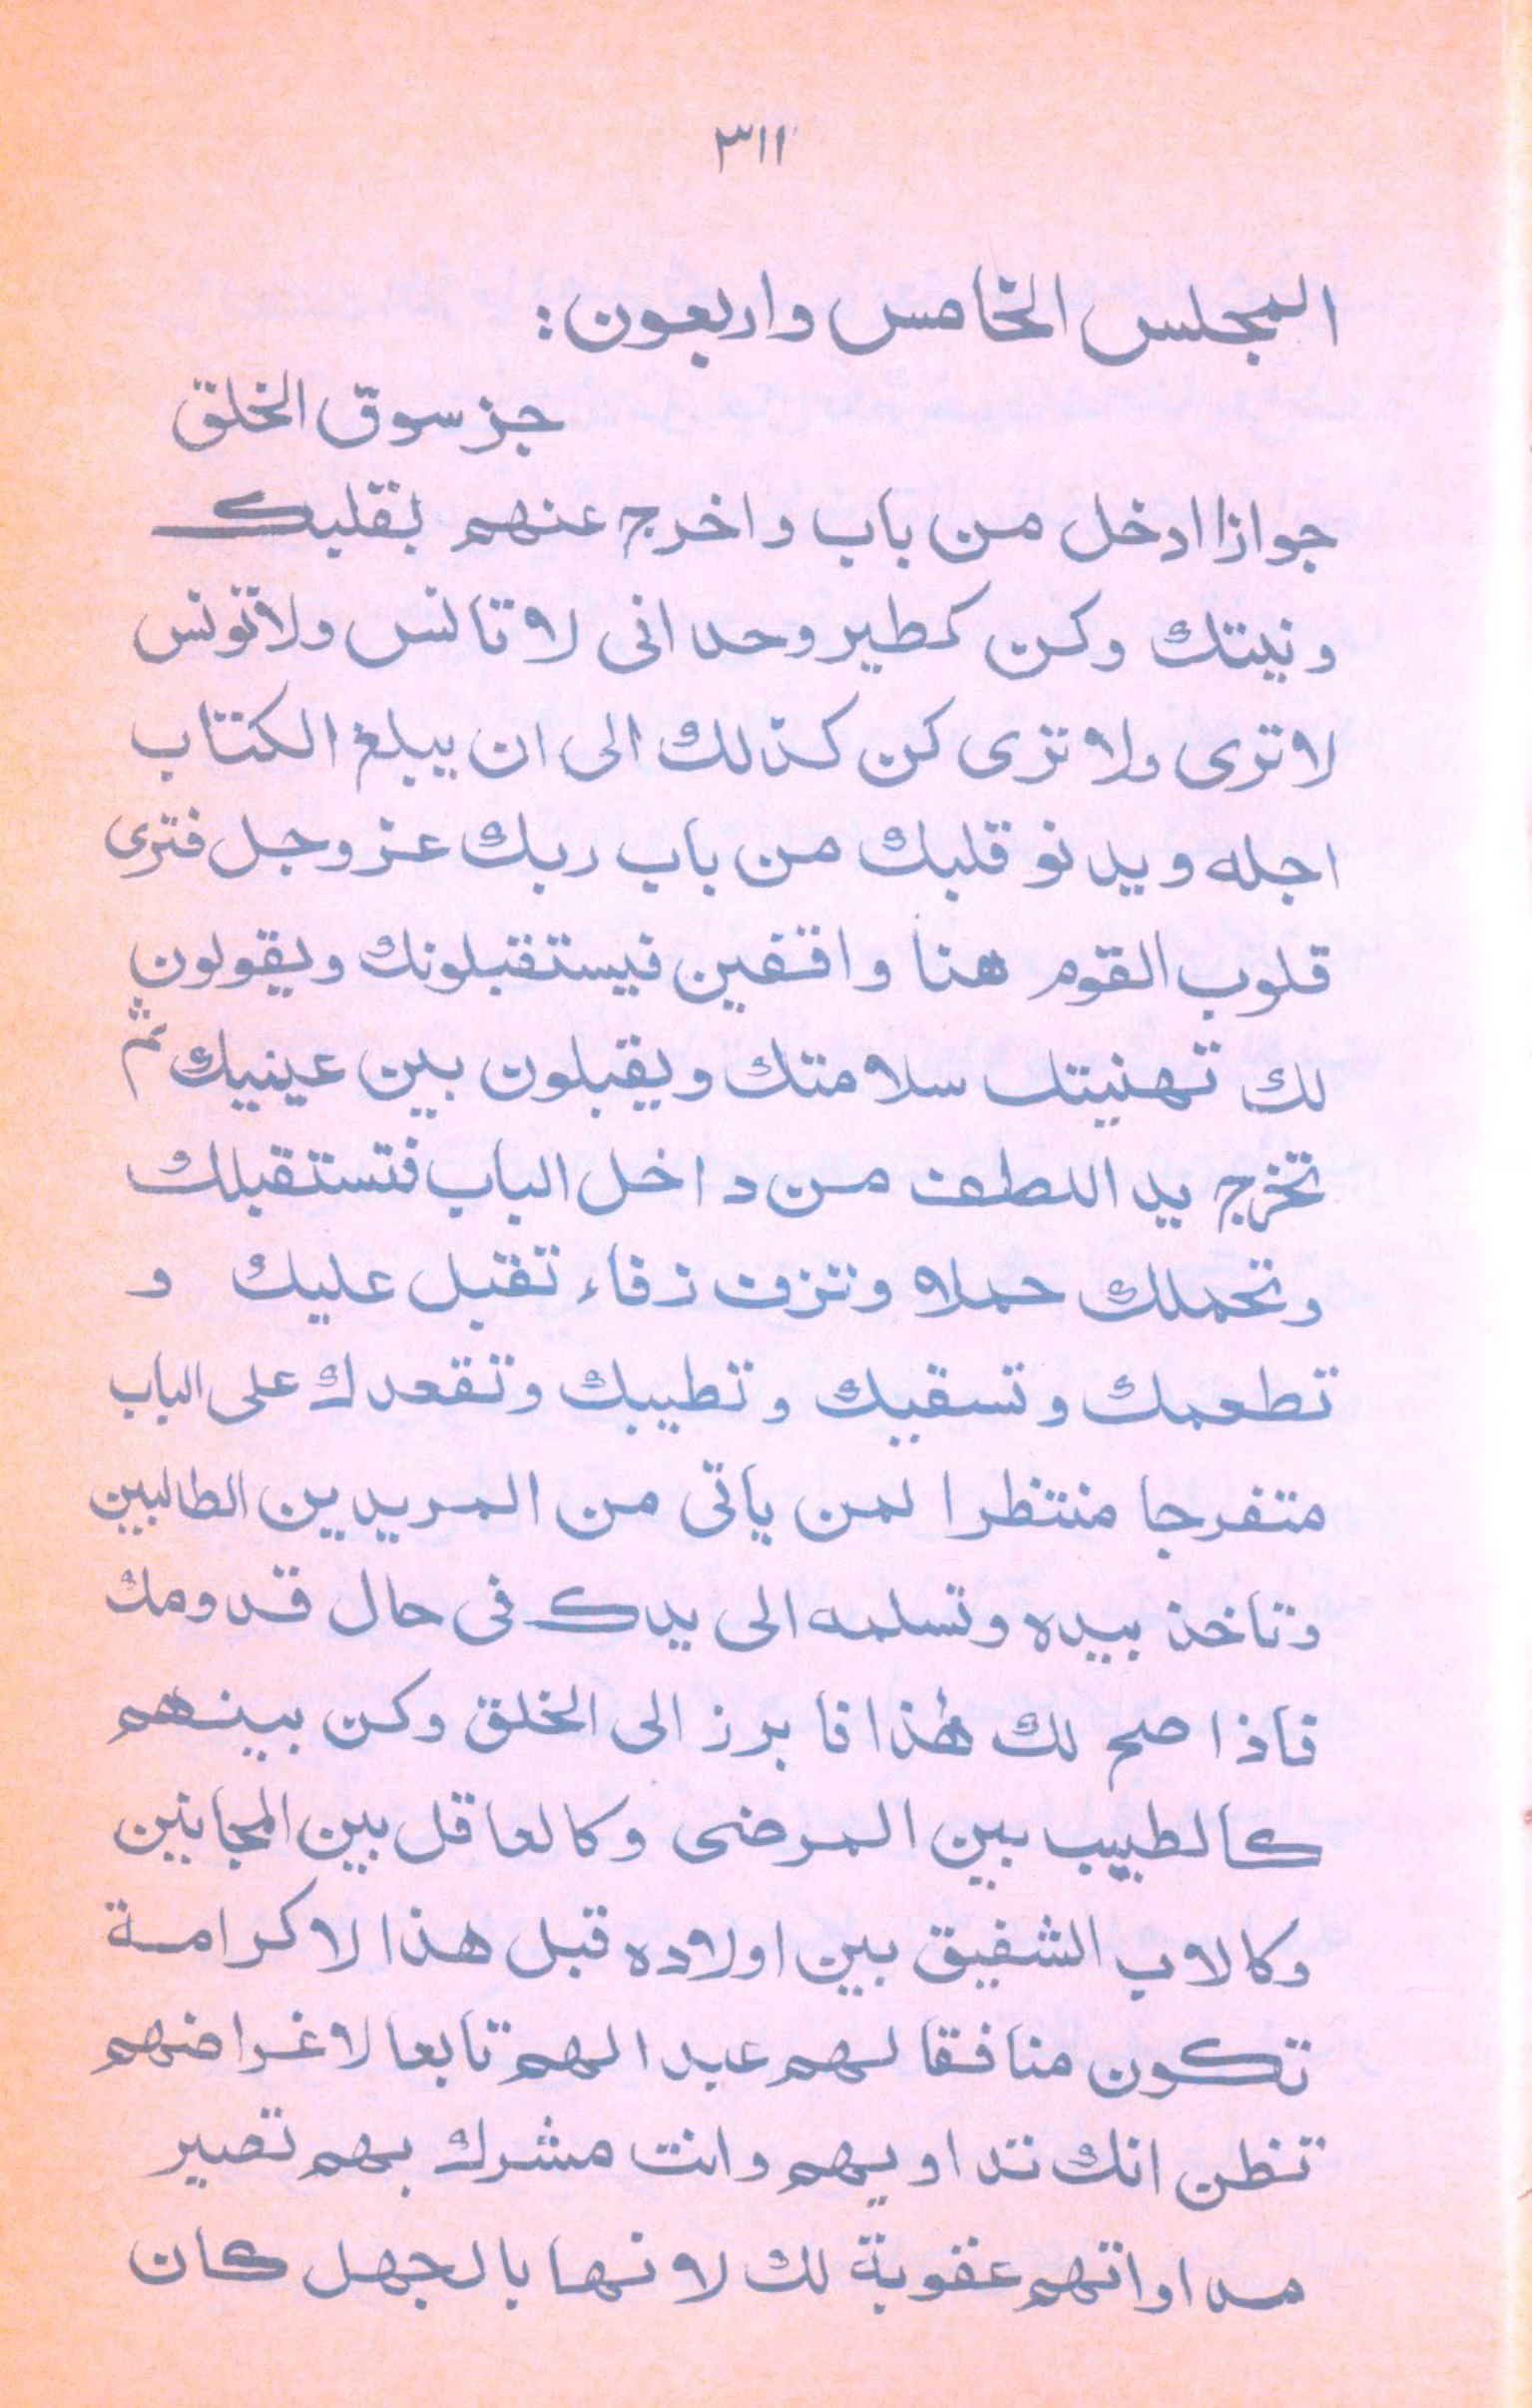 ٣١١
المجلس الخامس واربعون:
جز سوق الخلق
جوازا ادخل من باب واخرج عنهم بقلبك
ونيتك وكن كطير وحدانى لا تانس ولا تونس
لا ترى ولا ترى كن كذلك الى ان يبلغ الكتاب
اجله ويدنو قلبك من باب ربك عز وجل فترى
قلوب القوم هنا واقفين فيستقبلونك ويقولون
لك تهنيتك سلامتك ويقبلون بين عينيك ثم
تخرج يد اللطف من داخل الباب فتستقبلك
وتحملك حملا وتزف زفاء تقبل عليك و
تطعمك وتسقيك وتطيبك وتقعدك على الباب
متفرجا منتظرا لمن ياتى من المريدين الطالبين
وتاخذ بيده وتسلمه الى يدك فى حال قدومك
فاذا صح لك هٰذا فابرز الى الخلق وكن بينهم
كالطبيب بين المرضى وكالعاقل بين المجانين
وكالاب الشفيق بين اولاده قبل هذا لا كرامة
تكون منافقا لهم عبدا لهم تابعا لاغراضهم
تظن انك تداويهم وانت مشرك بهم تصير
مداواتهم عقوبة لك لانها بالجهل كان